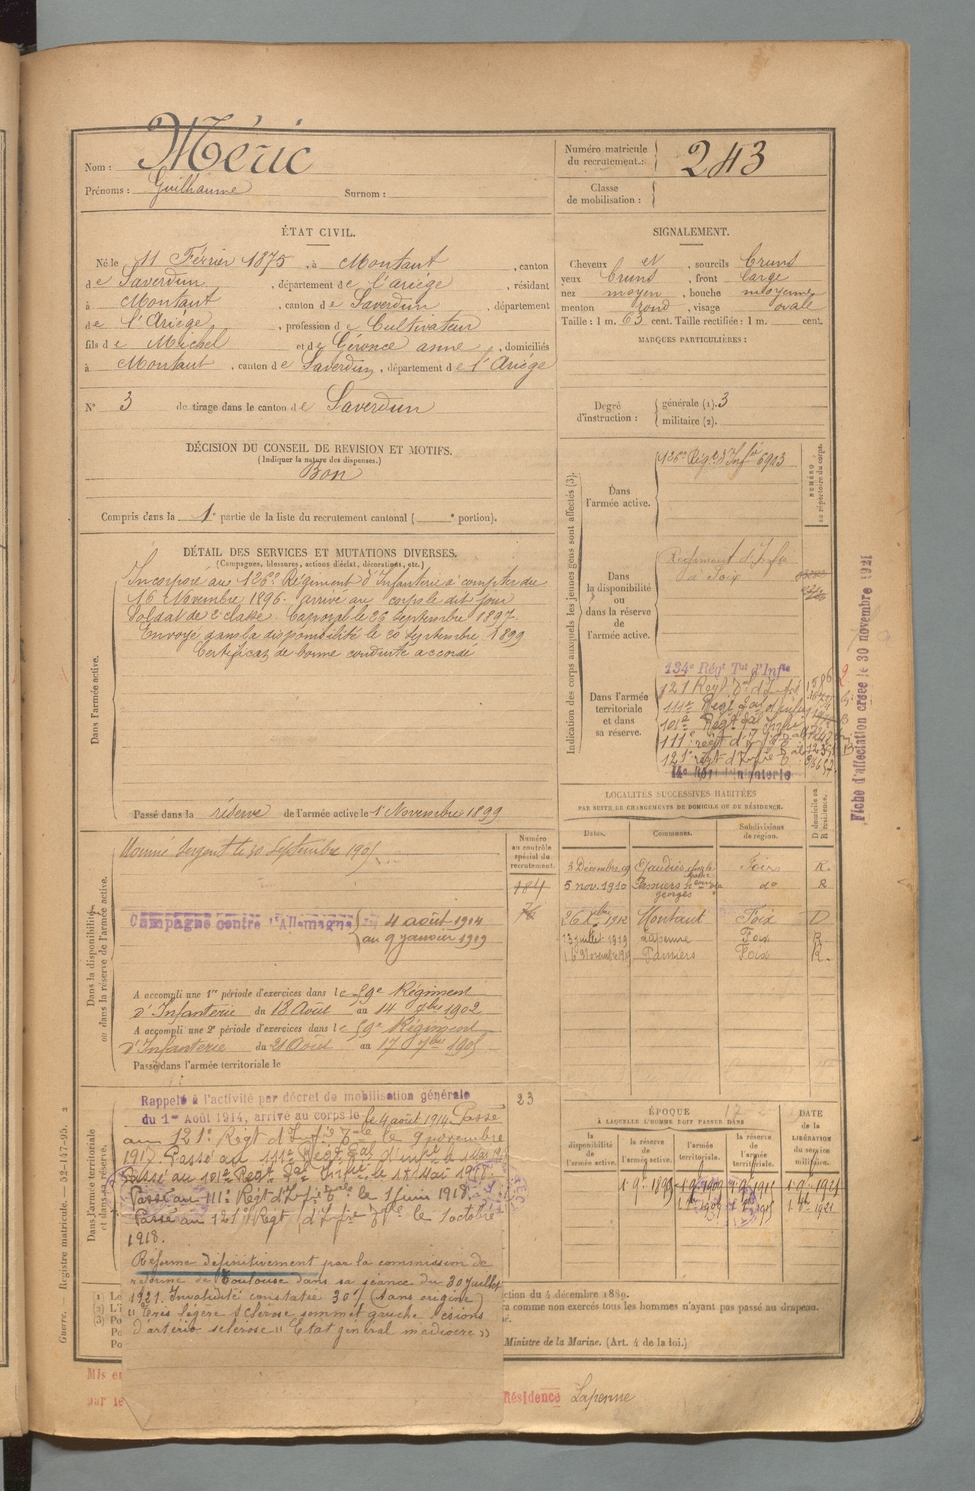 Nom : Méric
Prénoms : Guilhaume Surnom :
Numéro matricule du recrutement : 243
Classe de mobilisation :
ÉTAT CIVIL.
Né le 11 Février 1875, à Montaut, canton
de Saverdun, département de l'Ariége, résidant
à Montaut, canton de Saverdun, département
de l'Ariége, profession de Cultivateur
fils de Michel et de Géronce anne, domiciliés
à Montaut, canton de Saverdun, département de l'Ariége
N° 3 de tirage dans le canton de Saverdun
SIGNALEMENT.
Cheveux et, sourcils bruns
yeux bruns, front large
nez moyen, bouche moyenne
menton rond, visage ovale
Taille : 1 m. 63 cent. Taille rectifiée : 1 m. cent.
MARQUES PARTICULIÈRES :
Degré d'instruction : générale (1). 3
militaire (2).
DÉCISION DU CONSEIL DE REVISION ET MOTIFS.
(Indiquer la nature des dispenses.)
Bon
Compris dans la 1e partie de la liste du recrutement cantonal ( e portion).
DÉTAIL DES SERVICES ET MUTATIONS DIVERSES.
(Campagnes, blessures, actions d'éclat, décorations, etc.)
Dans l'armée active.
Incorporé au 126e Régiment d'Infanterie à compter du
16 Novembre 1896. arrivé au corps le dit jour
Soldat de 2e classe. Caporal le 26 Septembre 1897.
Envoyé dans la disponibilité le 20 Septembre 1899
Certificat de bonne conduite accordé
Passé dans la réserve de l'armée active le 1 Novembre 1899
Indication des corps auxquels les jeunes gens sont affectés (3).
NUMÉRO au répertoire du corps.
Dans l'armée active.
126e Régt d'Infie 6923
Dans la disponibilité ou dans la réserve de l'armée active.
Régiment d'Infie
de Foix
Dans l'armée territoriale et dans sa réserve.
134e Régt Tal d'Infie
121 Regt
111e Regt
101e Regt
111e régt
121e régt
14e Rgt Infanterie
Fiche d'affectation créée le 30 novembre 1921
LOCALITÉS SUCCESSIVES HABITÉES
PAR SUITE DE CHANGEMENTS DE DOMICILE OU DE RÉSIDENCE.
Dates. Communes. Subdivisions de région. D domicile ou R résidence.
3 Décembre Foix R.
5 nov. 1910 Pamiers do R
1912 Montaut Foix D
13 juillet 1919 Lapenne Foix R.
Pamiers Foix R.
Dans la disponibilité ou dans la réserve de l'armée active.
Nommé Sergent le 30 Septembre 1901
Numéro au contrôle spécial du recrutement.
184
76
Campagne contre l'Allemagne du 4 août 1914
au 9 janvier 1919
A accompli une 1re période d'exercices dans le 59e Régiment
d'Infanterie du 18 Août au 14 7bre 1902
A accompli une 2e période d'exercices dans le 59e Régiment
d'Infanterie du 21 Août au 17 7bre 1905
Passé dans l'armée territoriale le
Dans l'armée territoriale et dans sa réserve.
Rappelé à l'activité par décret de mobilisation générale
du 1er Août 1914, arrivé au corps le le 4 août 1914. Passé
au 121e Régt d'Infie Tale le 9 novembre
1917. Passé au 111e Régt Tal d'Infie le 1 Mars 1918
Passé au 101e Regt Tal Infie le 15 Mai 1918
Passé au 111e Régt d'Infie Tle le 1 Juin 1918.
Passé au 121e Régt d'Infie Tle le 1 octobre
1918.
Réformé définitivement par la commission de
réforme de Toulouse dans sa séance du 30 juillet
1921. Invalidité constatée 30% (sans origine)
"Très légère sclérose sommet gauche lésions
d'artério sclérose" Etat général médiocre "
23
ÉPOQUE
À LAQUELLE L'HOMME DOIT PASSER DANS
la disponibilité de l'armée active. la réserve de l'armée active. l'armée territoriale. la réserve de l'armée territoriale.
DATE de la LIBÉRATION du service militaire.
ction du 4 décembre 1889.
ra comme non exercés tous les hommes n'ayant pas passé au drapeau.
Ministre de la Marine. (Art. 4 de la loi.)
Guerre. — Registre matricule. — 52-147-95.
Mis en
par le
Résidence Lapenne